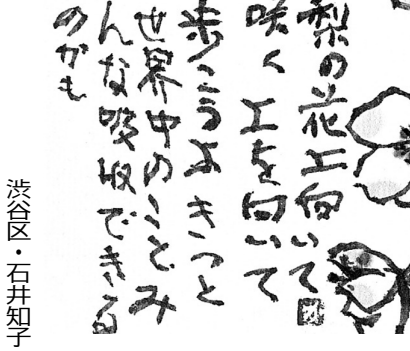 梨の花上向いて
咲く上を向いて
歩こうよきっと
世界中のことみ
んな吸収できる
のかも
渋谷区・石井知子